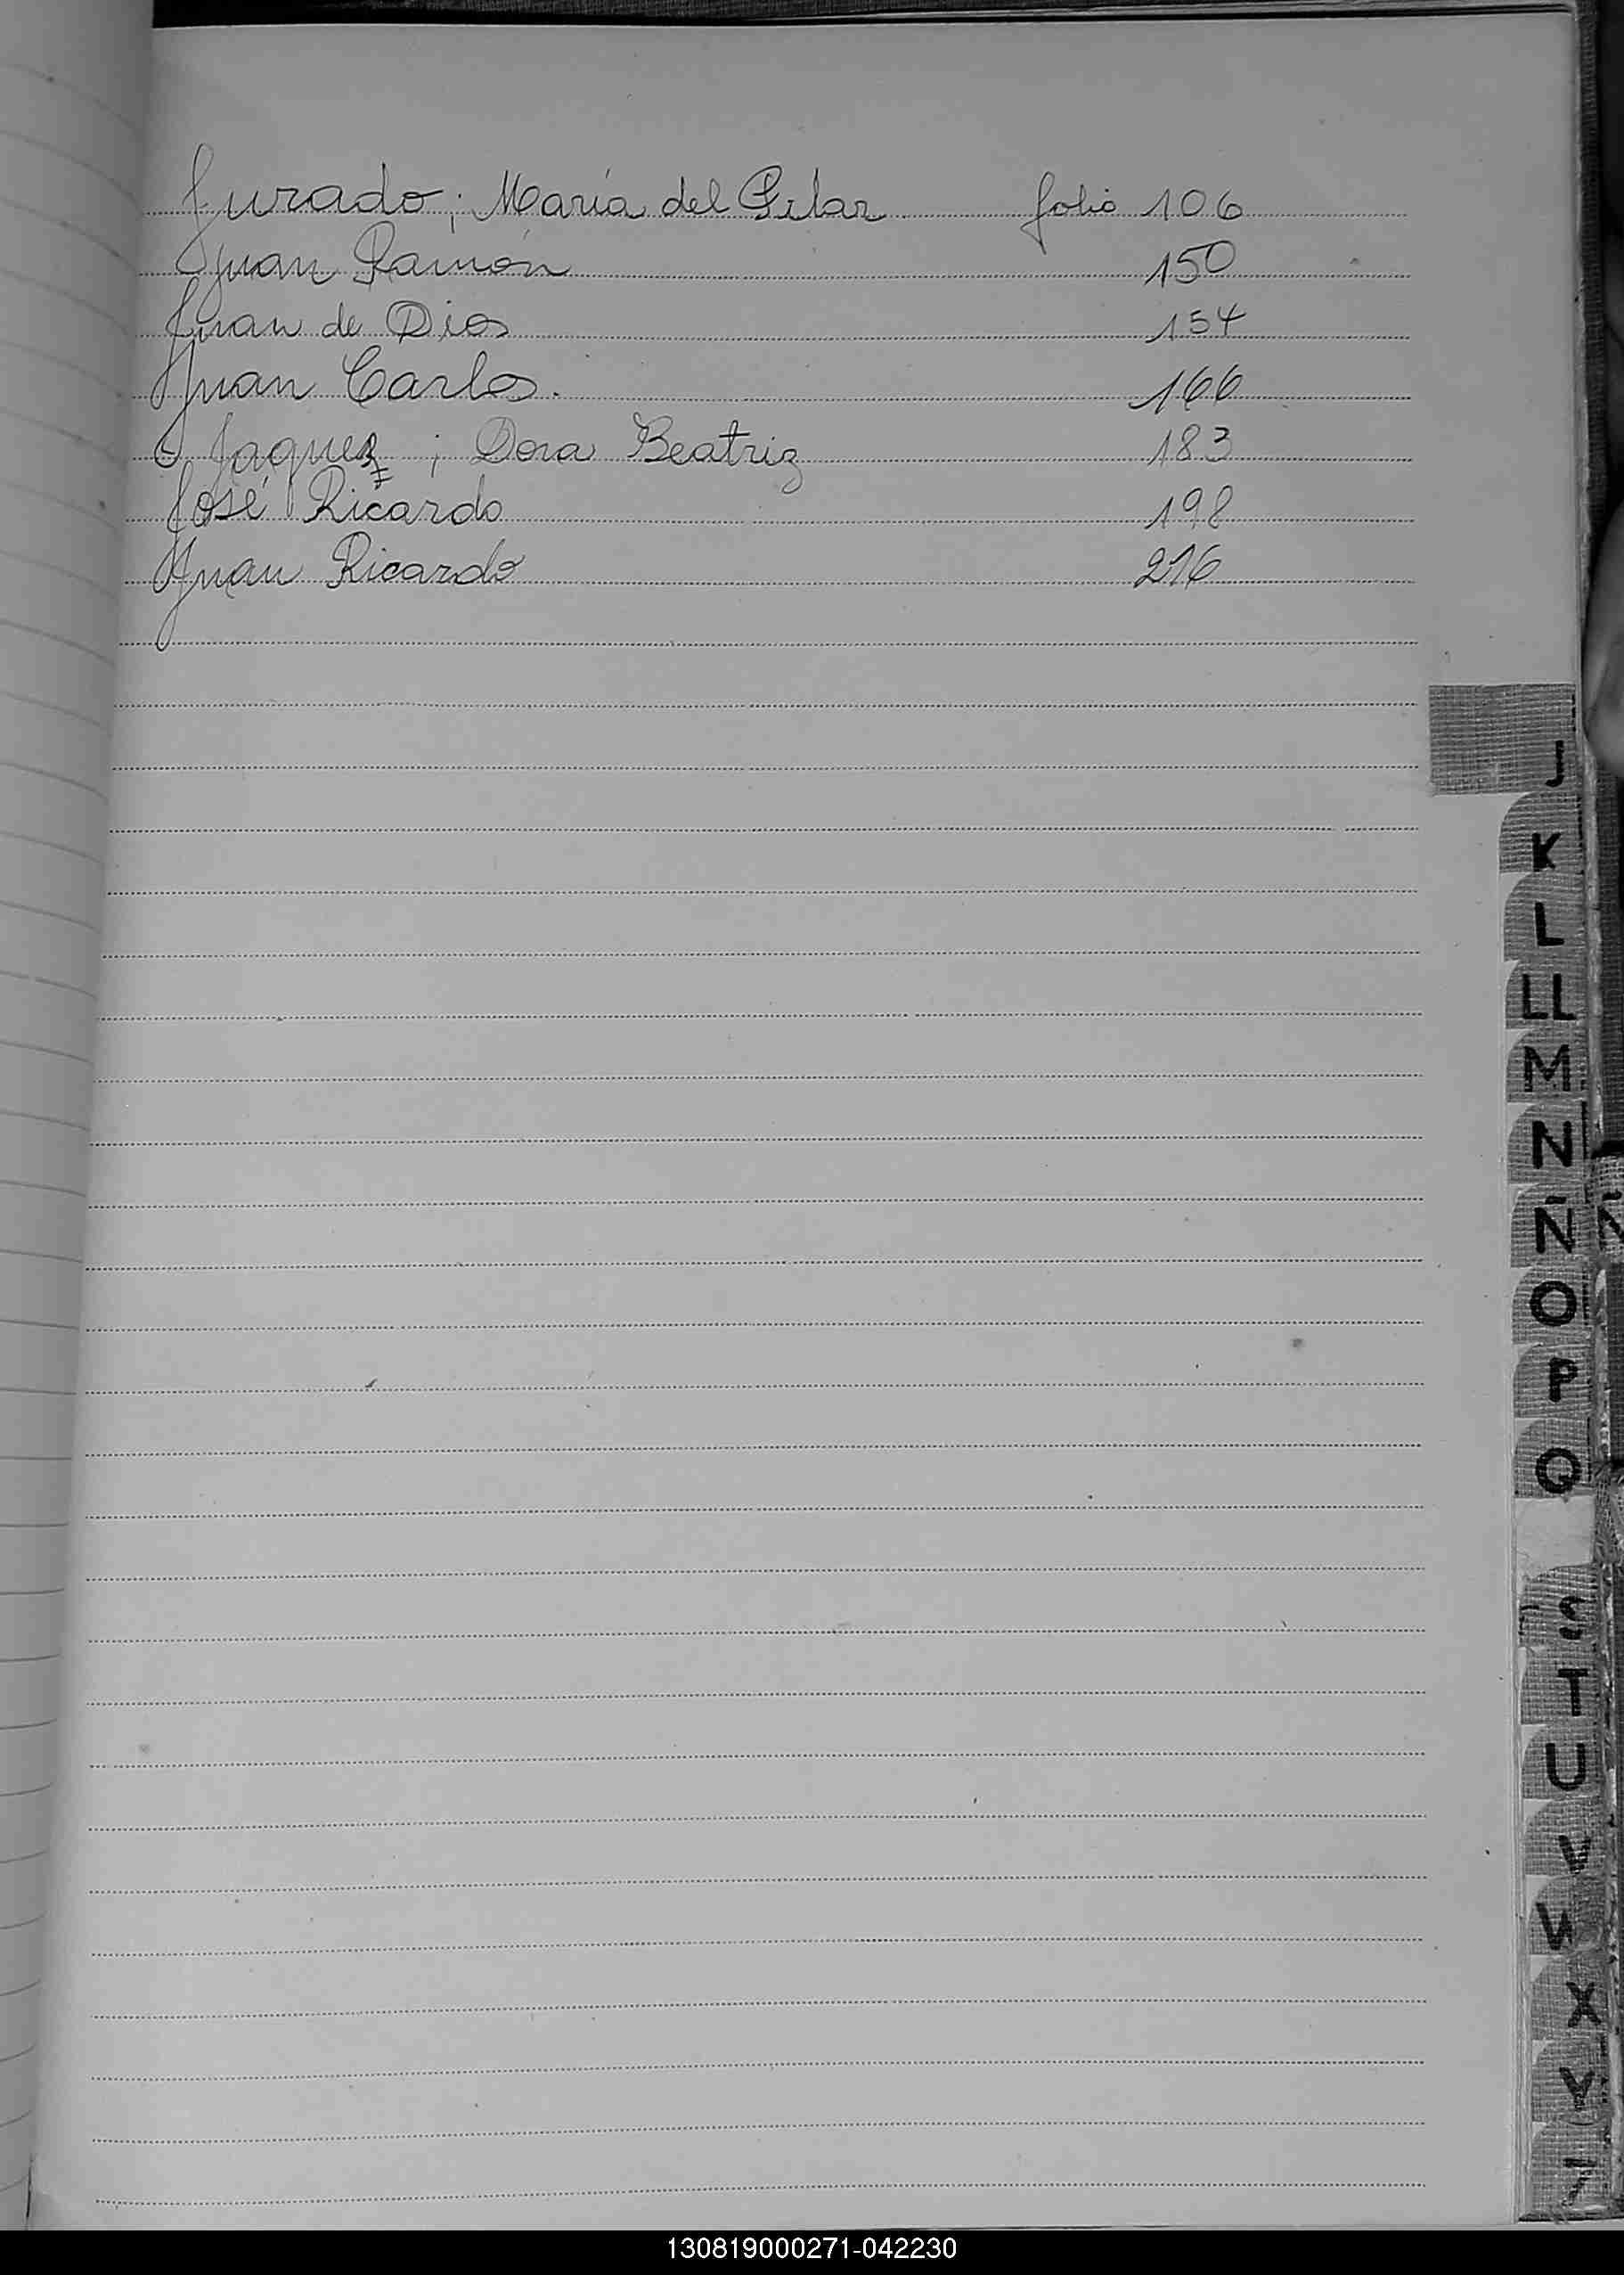 Jurado; María del Pilar folio 106
Juan Ramón 150
Juan de Dios 154
Juan Carlos. 166
Jaquez ; Dora Beatriz 183
José Ricardo 198
Juan Ricardo 216
J
K
L
LL
M
N
Ñ
O
P
Q
S
T
U
V
W
X
Y
130819000271-042230